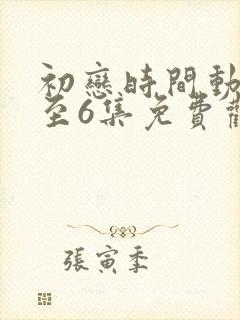 初戀時間動
至6集免費
張寅季